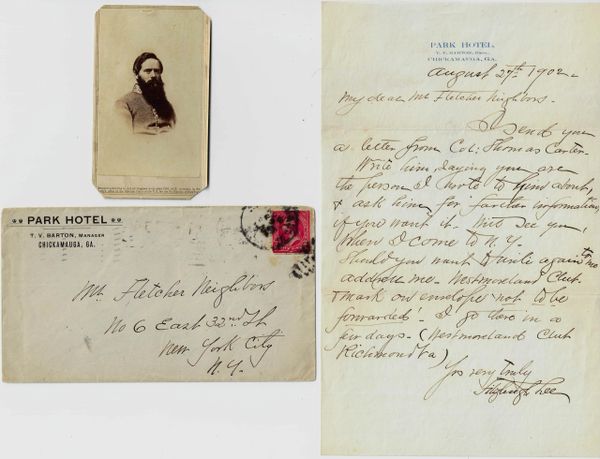 PARK HOTEL
T. V. BARTON, MANAGER
CHICKAMAUGA, GA.
Mr Fletcher Neighbors
No 6 East 32nd St.
New York City
N. Y.
PARK HOTEL,
T. V. BARTON, PROP.
CHICKAMAUGA, GA.
August 27th 1902-
My dear Mr Fletcher Neighbors-
I send you
a letter from Col: Thomas Carter-
Write him, saying you are
the person I wrote to him about,
& ask him for farther information,
if you want it. Will see you,
when I come to N. Y.
Should you want to write again to me
address me- Westmoreland Club-
& mark on envelope 'not to be
forwarded'. I go there in a
few days- (Westmoreland Club
Richmond Va)
Yrs very truly
Fitzhugh Lee